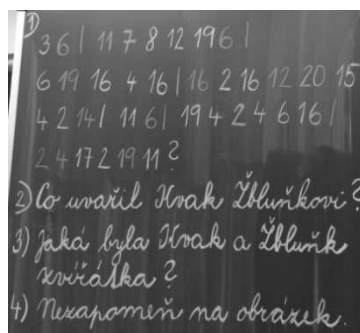 1)
3 6 | 11 7 8 12 19 6 |
6 19 16 4 16 | 16 2 16 12 20 15
4 2 14 | 11 6 | 19 4 2 4 6 16 |
2 4 17 2 19 11 ?
2) Co uvařil Kvak Žbluňkovi?
3) Jaká byla Kvak a Žbluňk
zvířátka?
4) Nezapomeň na obrázek.